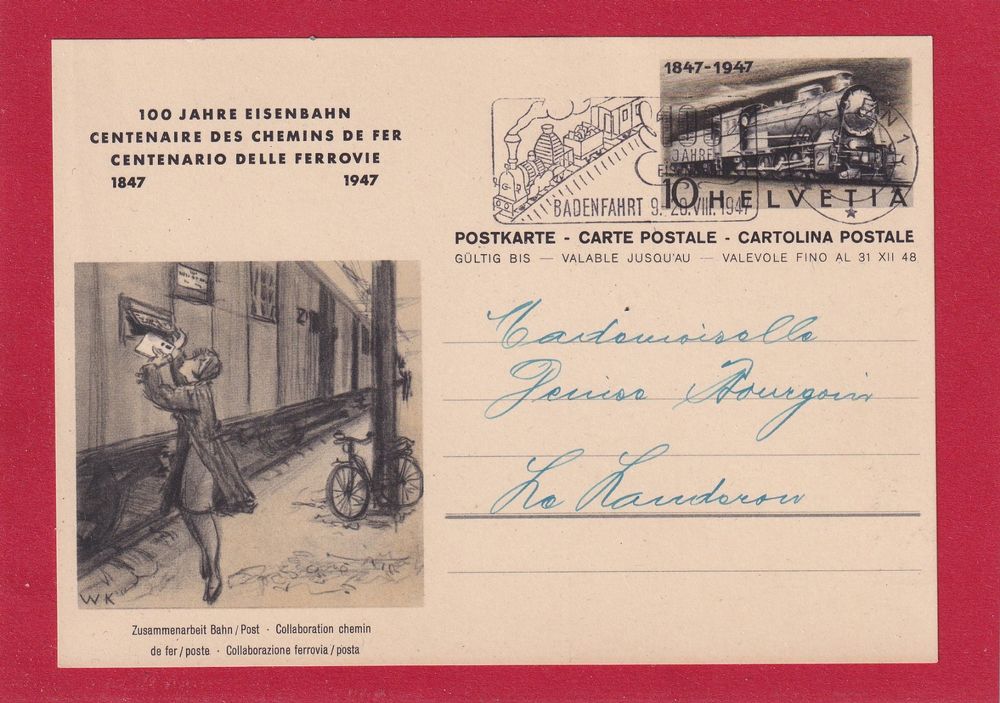 100 JAHRE EISENBAHN
CENTENAIRE DES CHEMINS DE FER
CENTENARIO DELLE FERROVIE
1847 1947
1847-1947
100
JAHRE
BADENFAHRT 9.-20.VIII.1947
10 HELVETIA
POSTKARTE - CARTE POSTALE - CARTOLINA POSTALE
GÜLTIG BIS — VALABLE JUSQU'AU — VALEVOLE FINO AL 31 XII 48
Mademoiselle
Denise Bourgoin
Le Landeron
WK
Zusammenarbeit Bahn / Post · Collaboration chemin
de fer / poste · Collaborazione ferrovia / posta